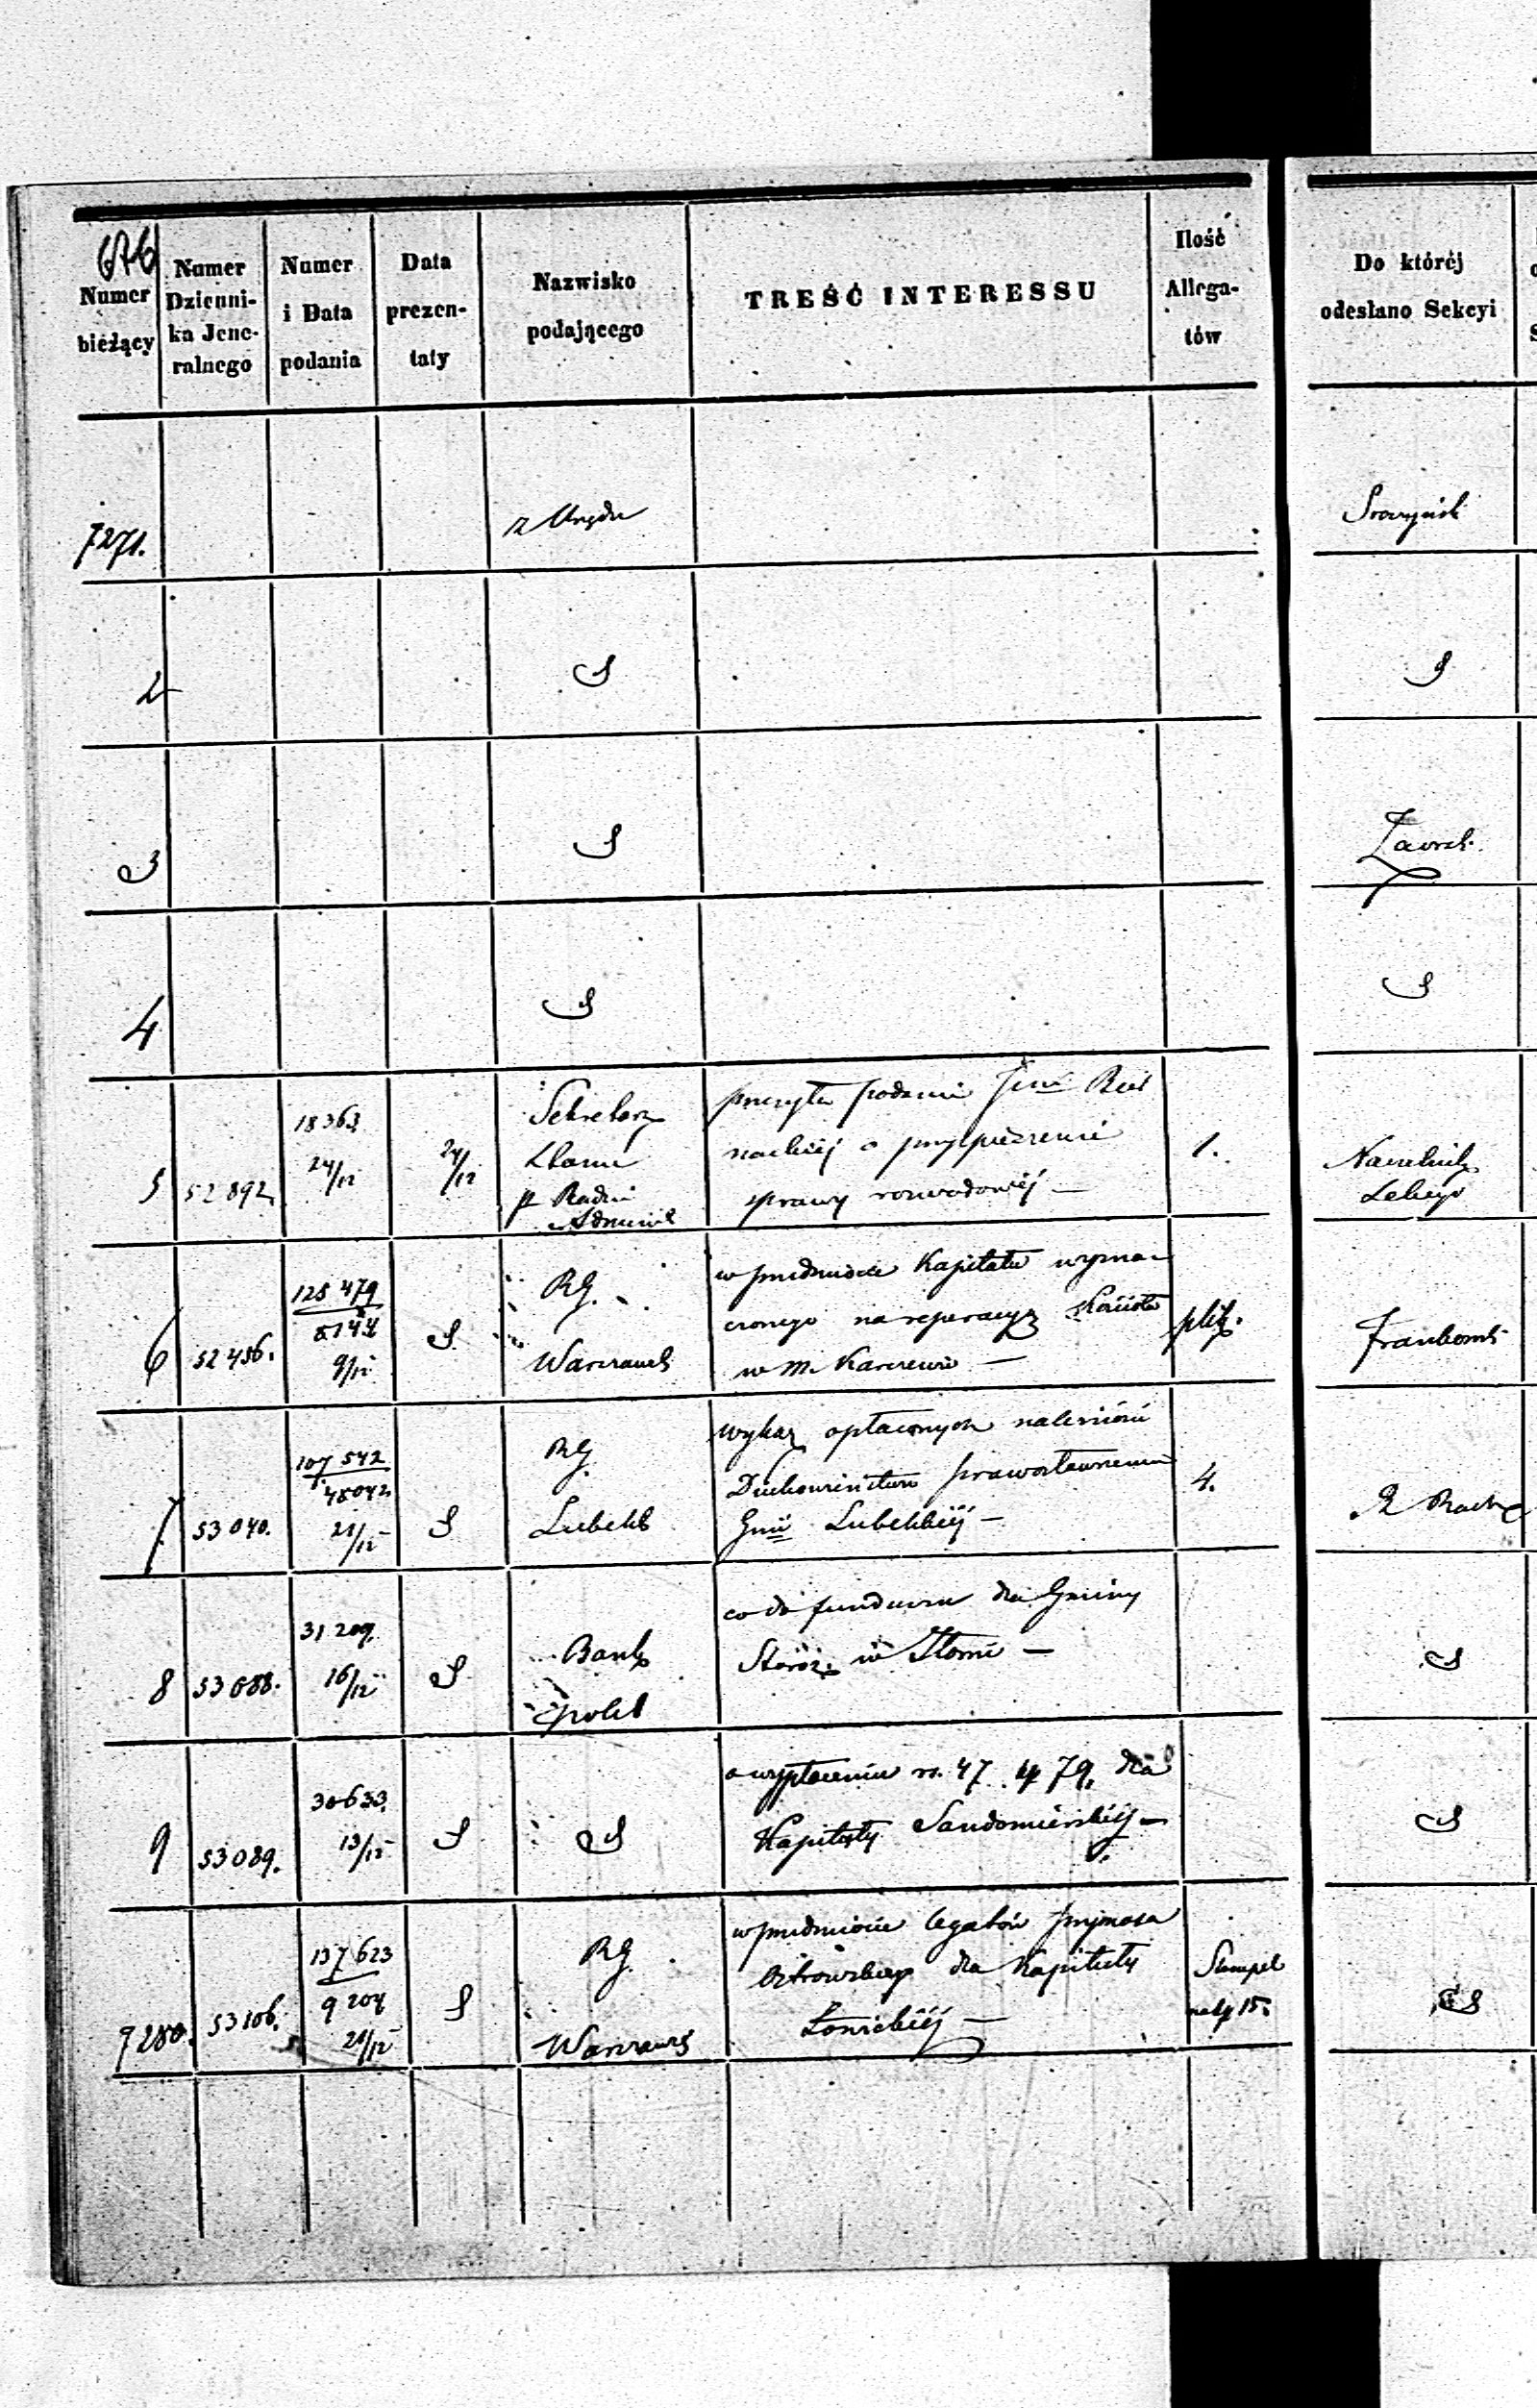 676
Numer bieżący
Numer Dzienni-ka Jene-ralnego
Numer i Data podania
Data prezen-taty
Nazwisko podającego
TREŚĆ INTERESSU
Ilość Allega-tów
Do któréj odesłano Sekcyi
7271.
z Urzędu
2
3
4
5
52892
18363
24/12
24/12
Sekretarz
Stanu
p Radzie
przesyła podanie
o przyspieszenie
sprawy rozwodowéj —
1.
Naczelnik
6
52456.
128479
9/12
RG.
Warszawsk
w przedmiocie Kapitału wyzna-
czonego na reperacyą Kościoła
w m. Karczewie —
plik.
7
53040.
107542
48042
21/12
RG.
Lubelsk
wykaz opłaconych należności
Duchowieństwu prawosławnemu
Gnii Lubelskiéj —
4.
8
53088.
31209.
16/12
Bank
Polsk
co do funduszu dla Gminy
9
53089.
30633.
13/12
o wypłaceniu rs. 47 k 79. dla
Kapituły Sandomierskiéj —
7280.
53106.
137623
9204
21/12
RG.
Warszaws
w przedmiocie legatów prymasa
Ostrowskiego dla Kapituły
Łowickiéj —
Stempel
na kp 15.